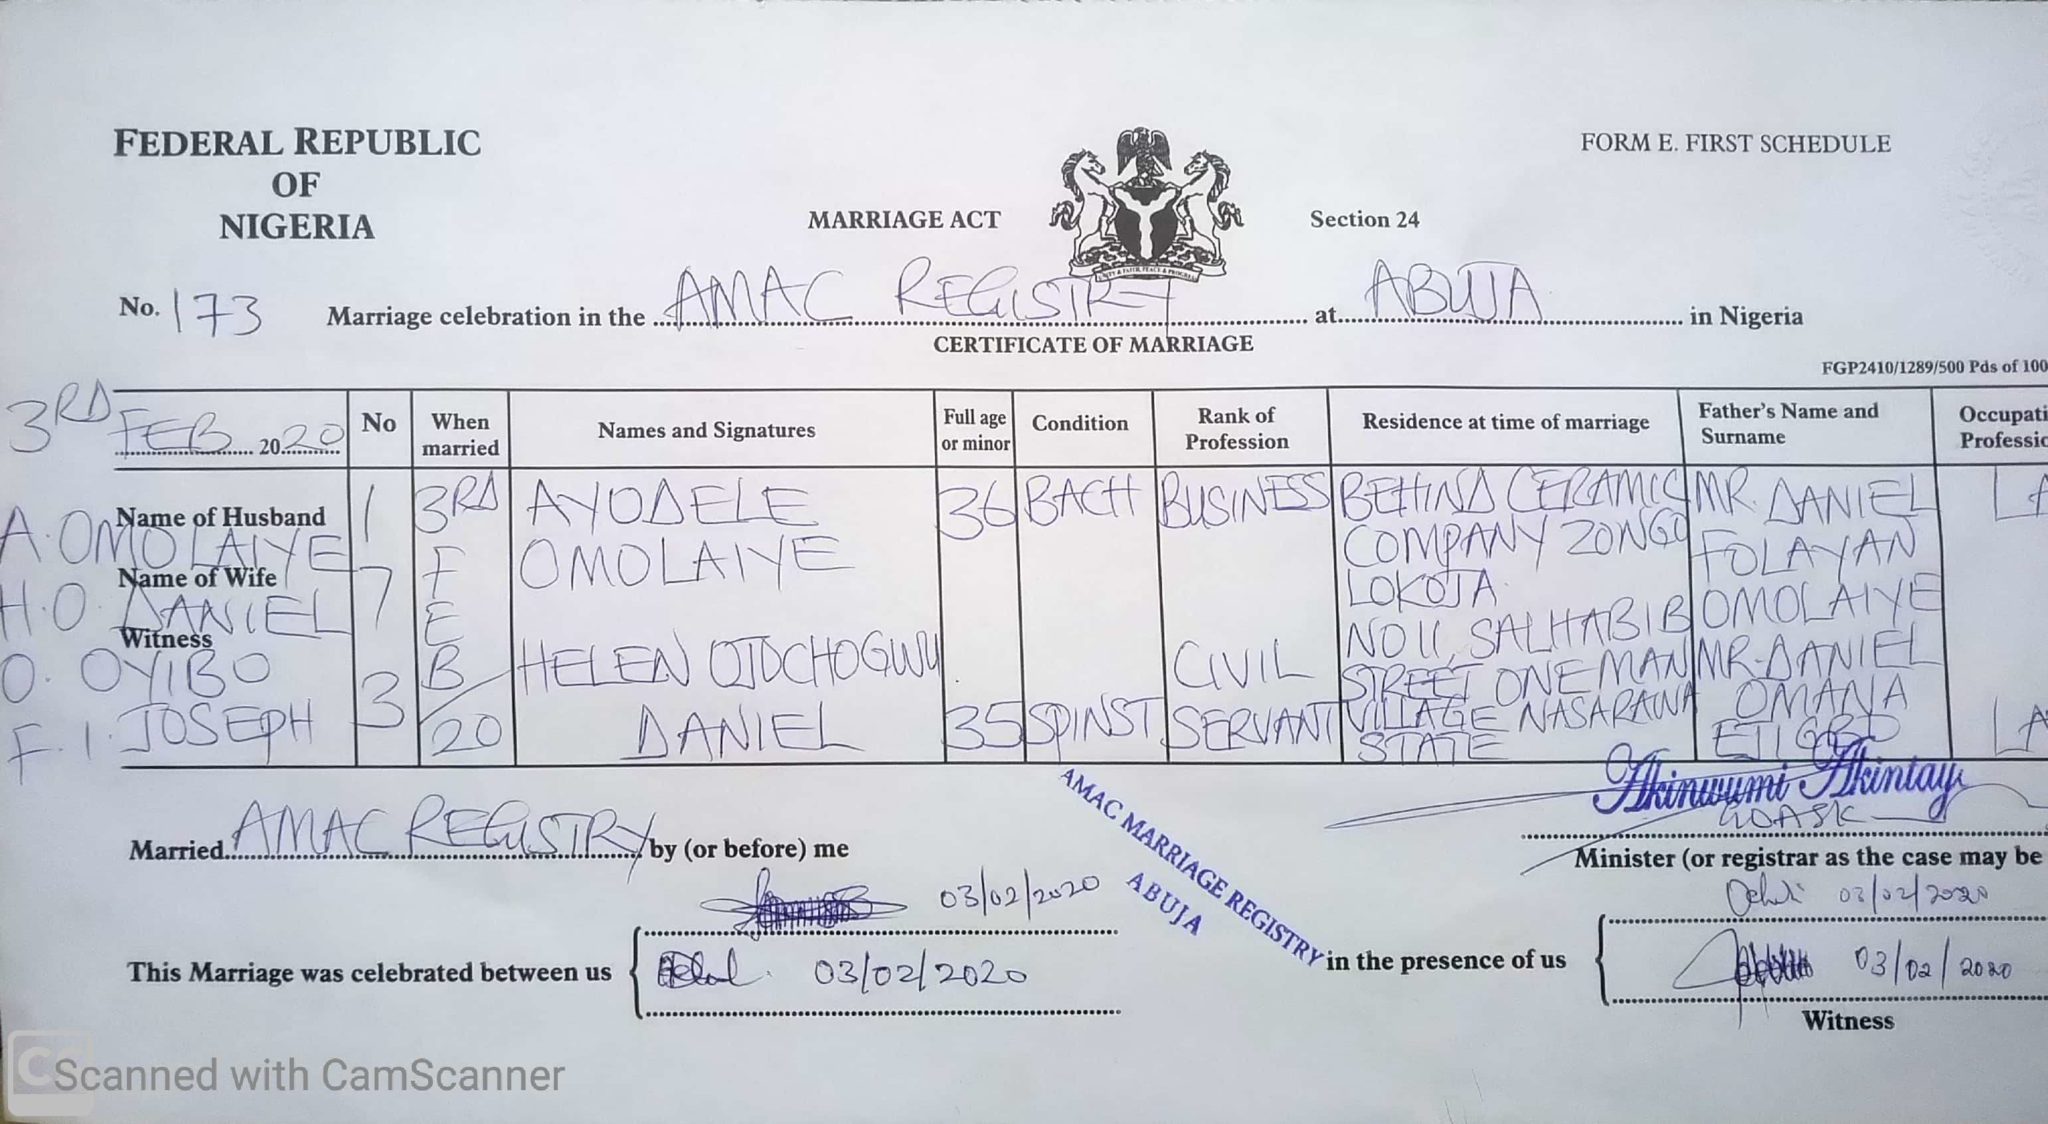 FEDERAL REPUBLIC
OF
NIGERIA
FORM E. FIRST SCHEDULE
MARRIAGE ACT
Section 24
UNITY & FAITH, PEACE & PROGRESS
No. 173 Marriage celebration in the AMAC REGISTRY at ABUJA in Nigeria
CERTIFICATE OF MARRIAGE
FGP2410/1289/500 Pds of 100
3RD FEB 2020
No
When married
Names and Signatures
Full age or minor
Condition
Rank of Profession
Residence at time of marriage
Father's Name and Surname
Occupati
Professio
Name of Husband
A. OMOLAIYE
Name of Wife
H.O. DANIEL
Witness
O. OYIBO
F. I. JOSEPH
173
3RD FEB/20
AYODELE
OMOLAIYE
36
BACH
BUSINESS
BEHIND CERAMIC
COMPANY ZONGO
LOKOJA
MR. DANIEL
FOLAYAN
OMOLAIYE
LA
HELEN OJOCHOGWU
DANIEL
35
SPINST
CIVIL
SERVANT
NO 11, SALHABIB
STREET ONE MAN
VILLAGE NASARAWA
STATE
MR. DANIEL
OMANA
LA
Married AMAC REGISTRY by (or before) me
AMAC MARRIAGE REGISTRY
ABUJA
Akinwumi Akintay
Minister (or registrar as the case may be
03/02/2020
03/02/2020
This Marriage was celebrated between us
03/02/2020
in the presence of us
03/02/2020
Witness
CS Scanned with CamScanner